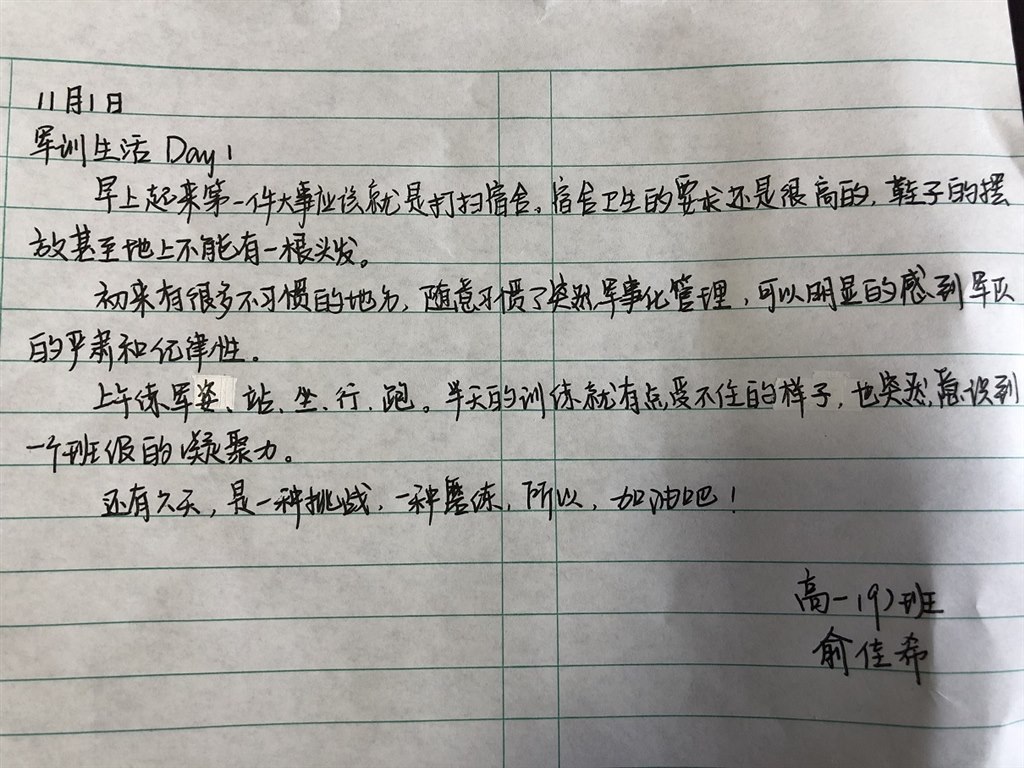 11月1日
军训生活 Day 1
早上起来第一件大事应该就是打扫宿舍。宿舍卫生的要求还是很高的,鞋子的摆
放甚至地上不能有一根头发。
初来有很多不习惯的地方,随意习惯了突然军事化管理,可以明显的感到军队
的严肃和纪律性。
上午练军姿、站、坐、行、跑。半天的训练就有点受不住的样子,也突然意识到
一个班级的凝聚力。
还有六天,是一种挑战,一种磨练,所以,加油吧!
高一(9)班
俞佳希